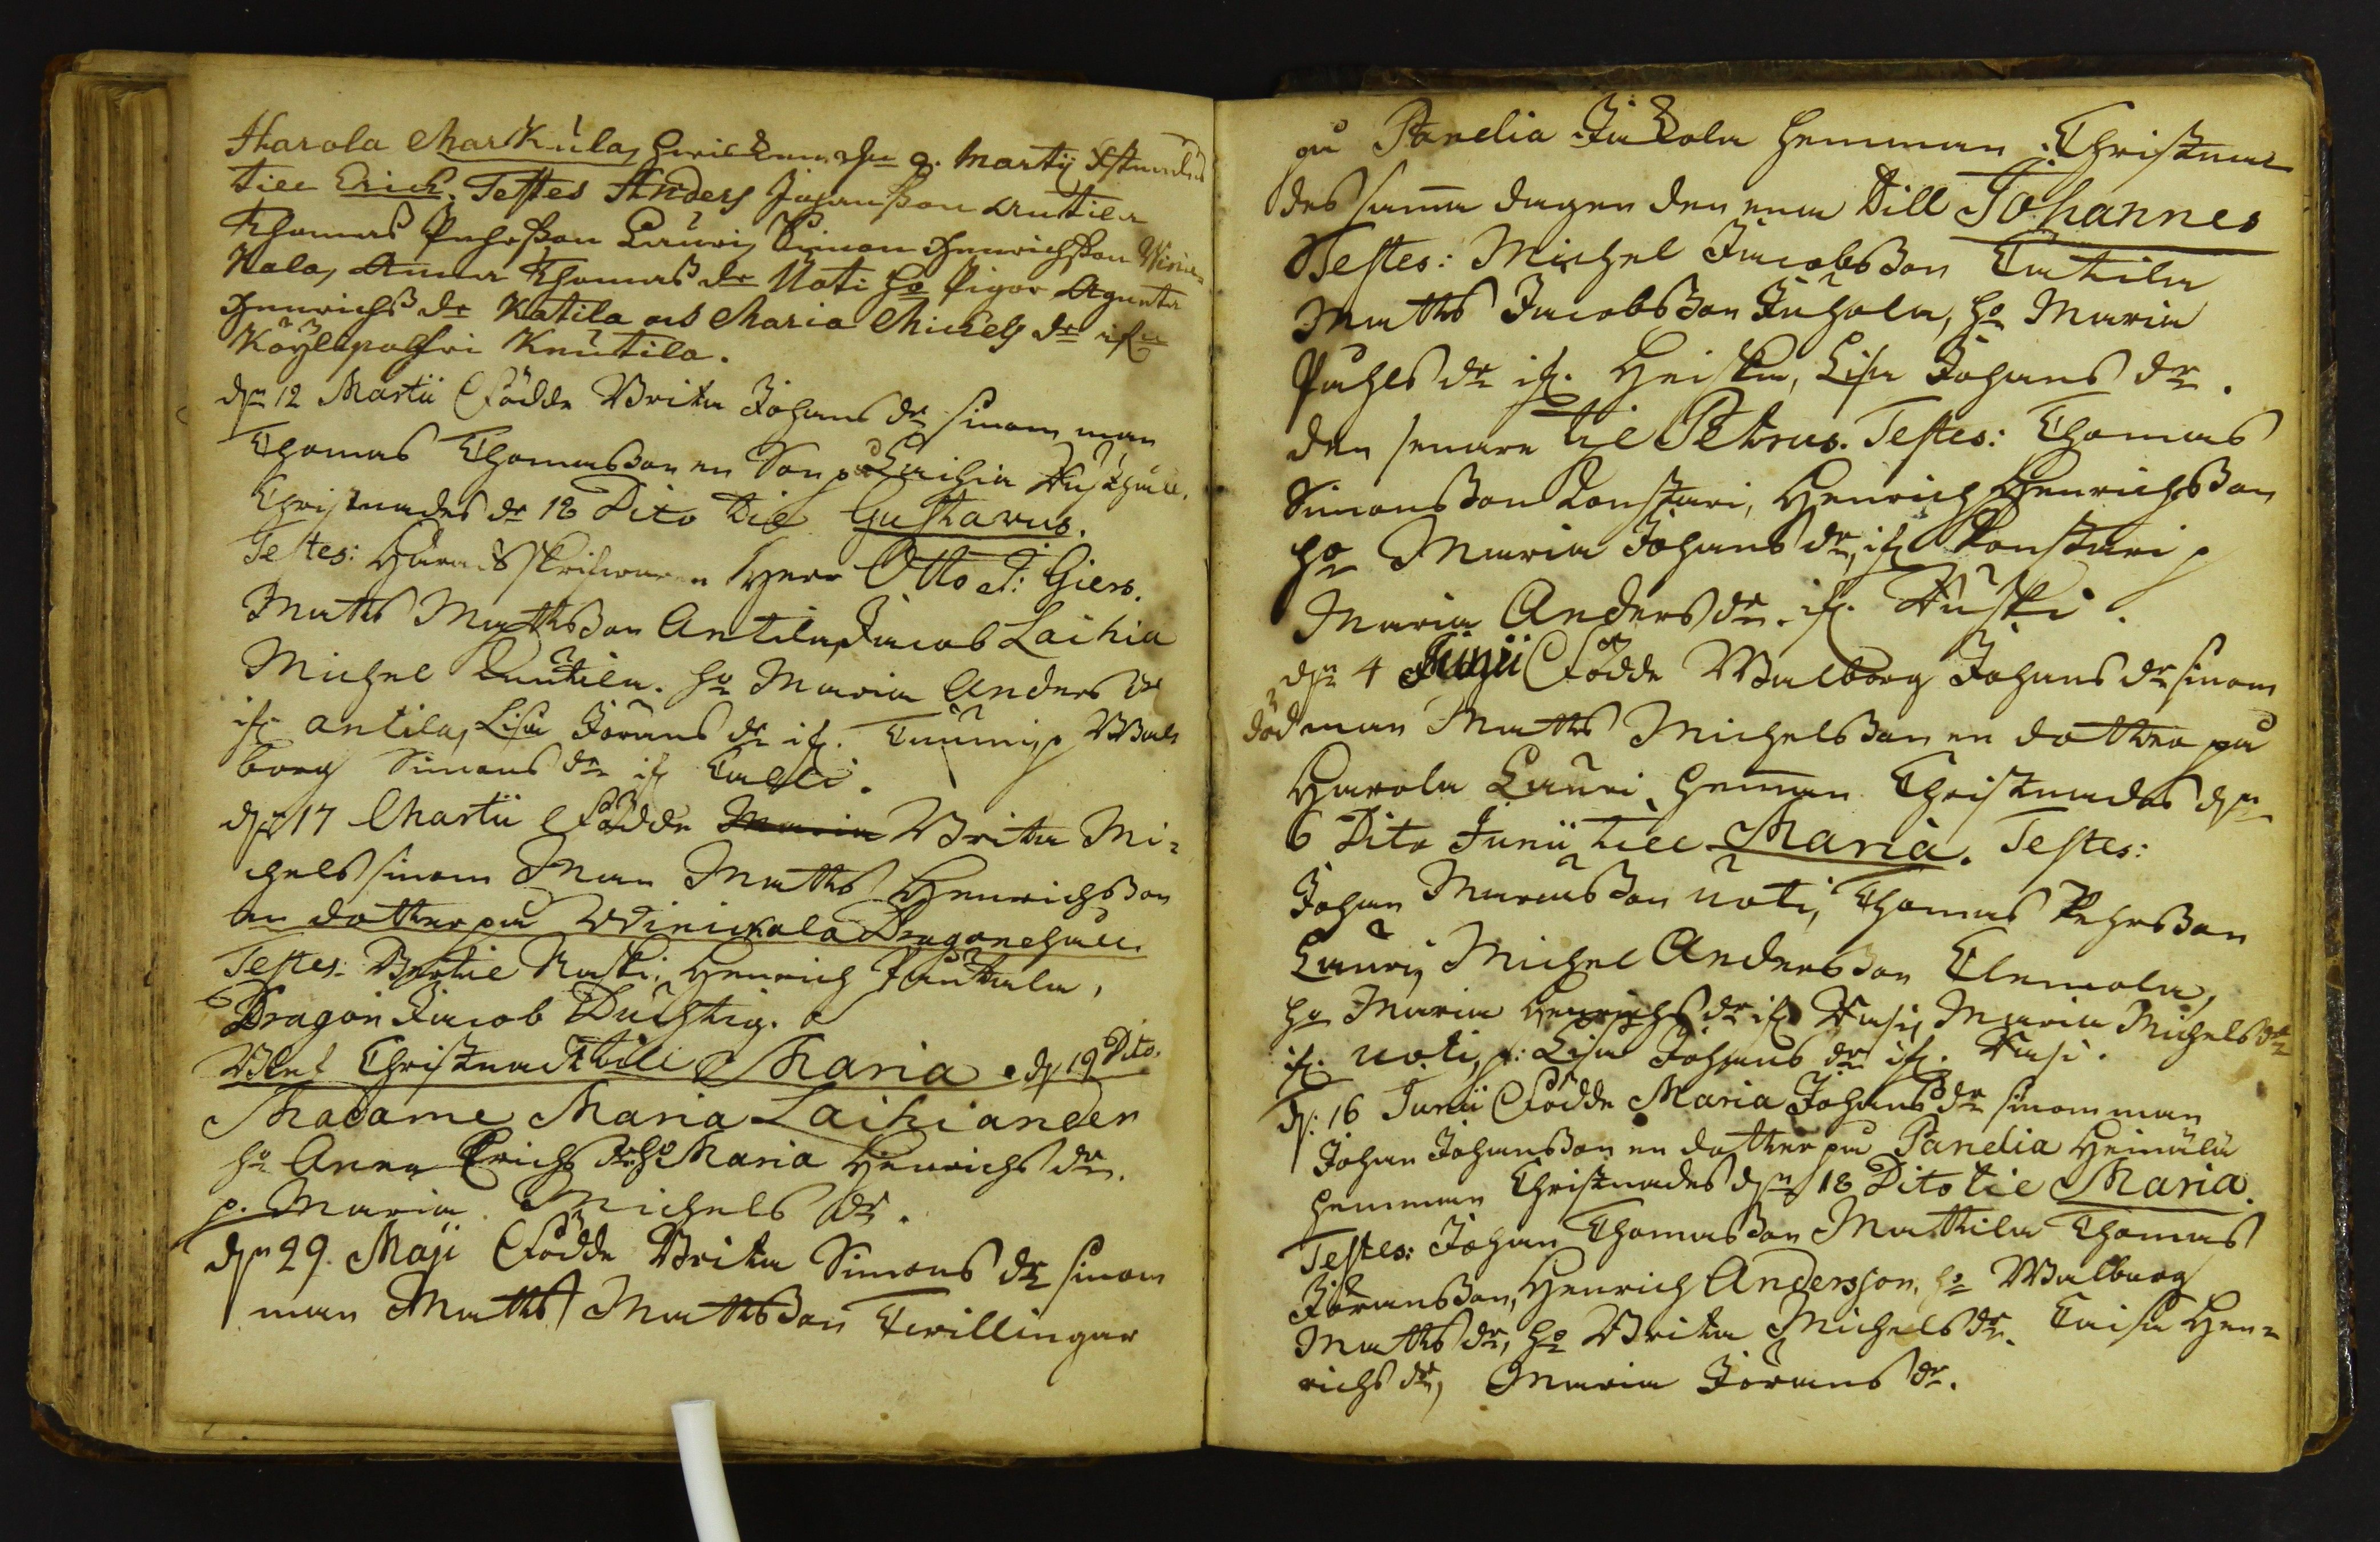 Harola Markula, hwilken den 9. Martij Xstnades
till Erich. Testes Anders Johansson Antila
Thomas Pehrsson Lauri, Simon Henrichsson Winic-
kala, Anna Thomas dr Uoti ho Pigor Agneta
Henrichs dr Katila och Maria Michels dr if
Köylypolfvi Knutila.
dn 12 Martii Födde Brita Johans dr sinom man
Thomas Thomasson en Son på Laihia Rusthåll.
Christnades dn 18 Dito till Gustavus.
Testes: Häradsskrifwaren Herr Otto J: Giers.
Matts Mattsson Antila, Jacob Laihia
Michel Knutila. ho Maria Anders dr
if. Antila, Lisa Jörans dr if. Tuumi, p. Wal
borg Simons dr if. Talli.
dn 17 Martii Födde Maria Brita Mi-
chels sinom Man Matts Henrichsson
en dotter på Winickala Dragonehåll.
Testes: Bertil Raski, Henrich Panttala,
Dragon Jacob Duchtig.
Blef Christnadt till Maria. d. 19 Dito.
Madame Maria Laihiander
ho Anna Erichs dr ho Maria Henrichs dr.
p. Maria Michels dr.
dn 29. Maji Födde Brita Simons dr sinom
man Matts Mattsson Twillingar
på Panelia Jaakola hemman. Christna-
des samma dagen den ena till Johannes
Testes: Michel Jacobsson Tutila
Matts Jacobsson Juhola, ho Maria
Påhls dr if. Heiska, Lisa Johans dr.
den senare till Petrus. Testes: Thomas
Simonsson Konstari, Henrich Henrichsson
ho Maria Johans dr, if. Konstari p
Maria Anders dr. if. Ruski.
dn 4 Junii Födde Walborg Johans dr sinom
död man Matts Michelsson en dotter på
Harola Lauri hemman Christnades dn
6 Dito Junii till Maria. Testes:
Johan Marcusson Uoti, Thomas Pehrsson
Lauri, Michel Andersson Clemola,
ho Maria Henrichs dr if. Rasi, Maria Michels dr
if. Uoti, p: Lisa Johans dr if. Rasi.
d: 16 Junii Födde Maria Johans dr sinom man
Johan Johansson en dotter på Panelia Heinilä
hemman Christnades dn 18 Dito till Maria.
Testes: Johan Thomasson Mattila Thomas
Jöransson, Henrich Andersson, ho Walborg
Matts dr, ho Brita Michels dr. Caisa Hen-
richs dr, Maria Jörans dr.